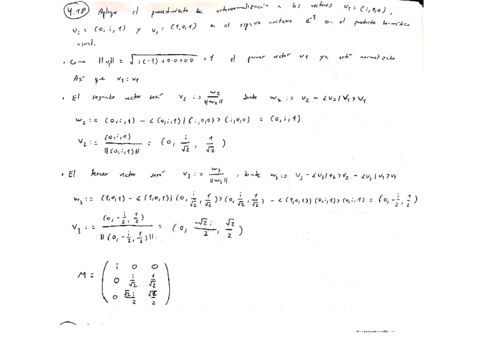 4.18 Aplique el procedimiento de ortonormalización a los vectores v₁ = (i,0,0),
v₂ = (0,i,1) y v₃ = (1,0,1) en el espacio vectorial ℂ³ en el producto hermítico
usual.
• Como ||v₁|| = √(i(-i)+0·0+0·0) = 1 el primer vector v1 ya está normalizado
Así que v₁ = v₁
• El segundo vector será v₂ := w₂/||w₂|| donde w₂ := v₂ - <v₂|v₁>v₁
w₂ := (0,i,1) - <(0,i,1)|(i,0,0)>(i,0,0) = (0,i,1)
v₂ := (0,i,1)/||(0,i,1)|| = (0, i/√2, 1/√2)
• El tercer vector será v₃ := w₃/||w₃||, donde w₃ := v₃ - <v₃|v₂>v₂ - <v₃|v₁>v₁
w₃ := (1,0,1) - <(1,0,1)|(0, i/√2, 1/√2)>(0, i/√2, 1/√2) - <(1,0,1)|(0,i,1)>(0,i,1) = (0, -i/2, 1/2)
v₃ = (0, -i/2, 1/2)/||(0, -i/2, 1/2)|| = (0, -√2i/2, √2/2)
M = ( i 0 0
0 i/√2 1/√2
0 √2i/2 √2/2 )